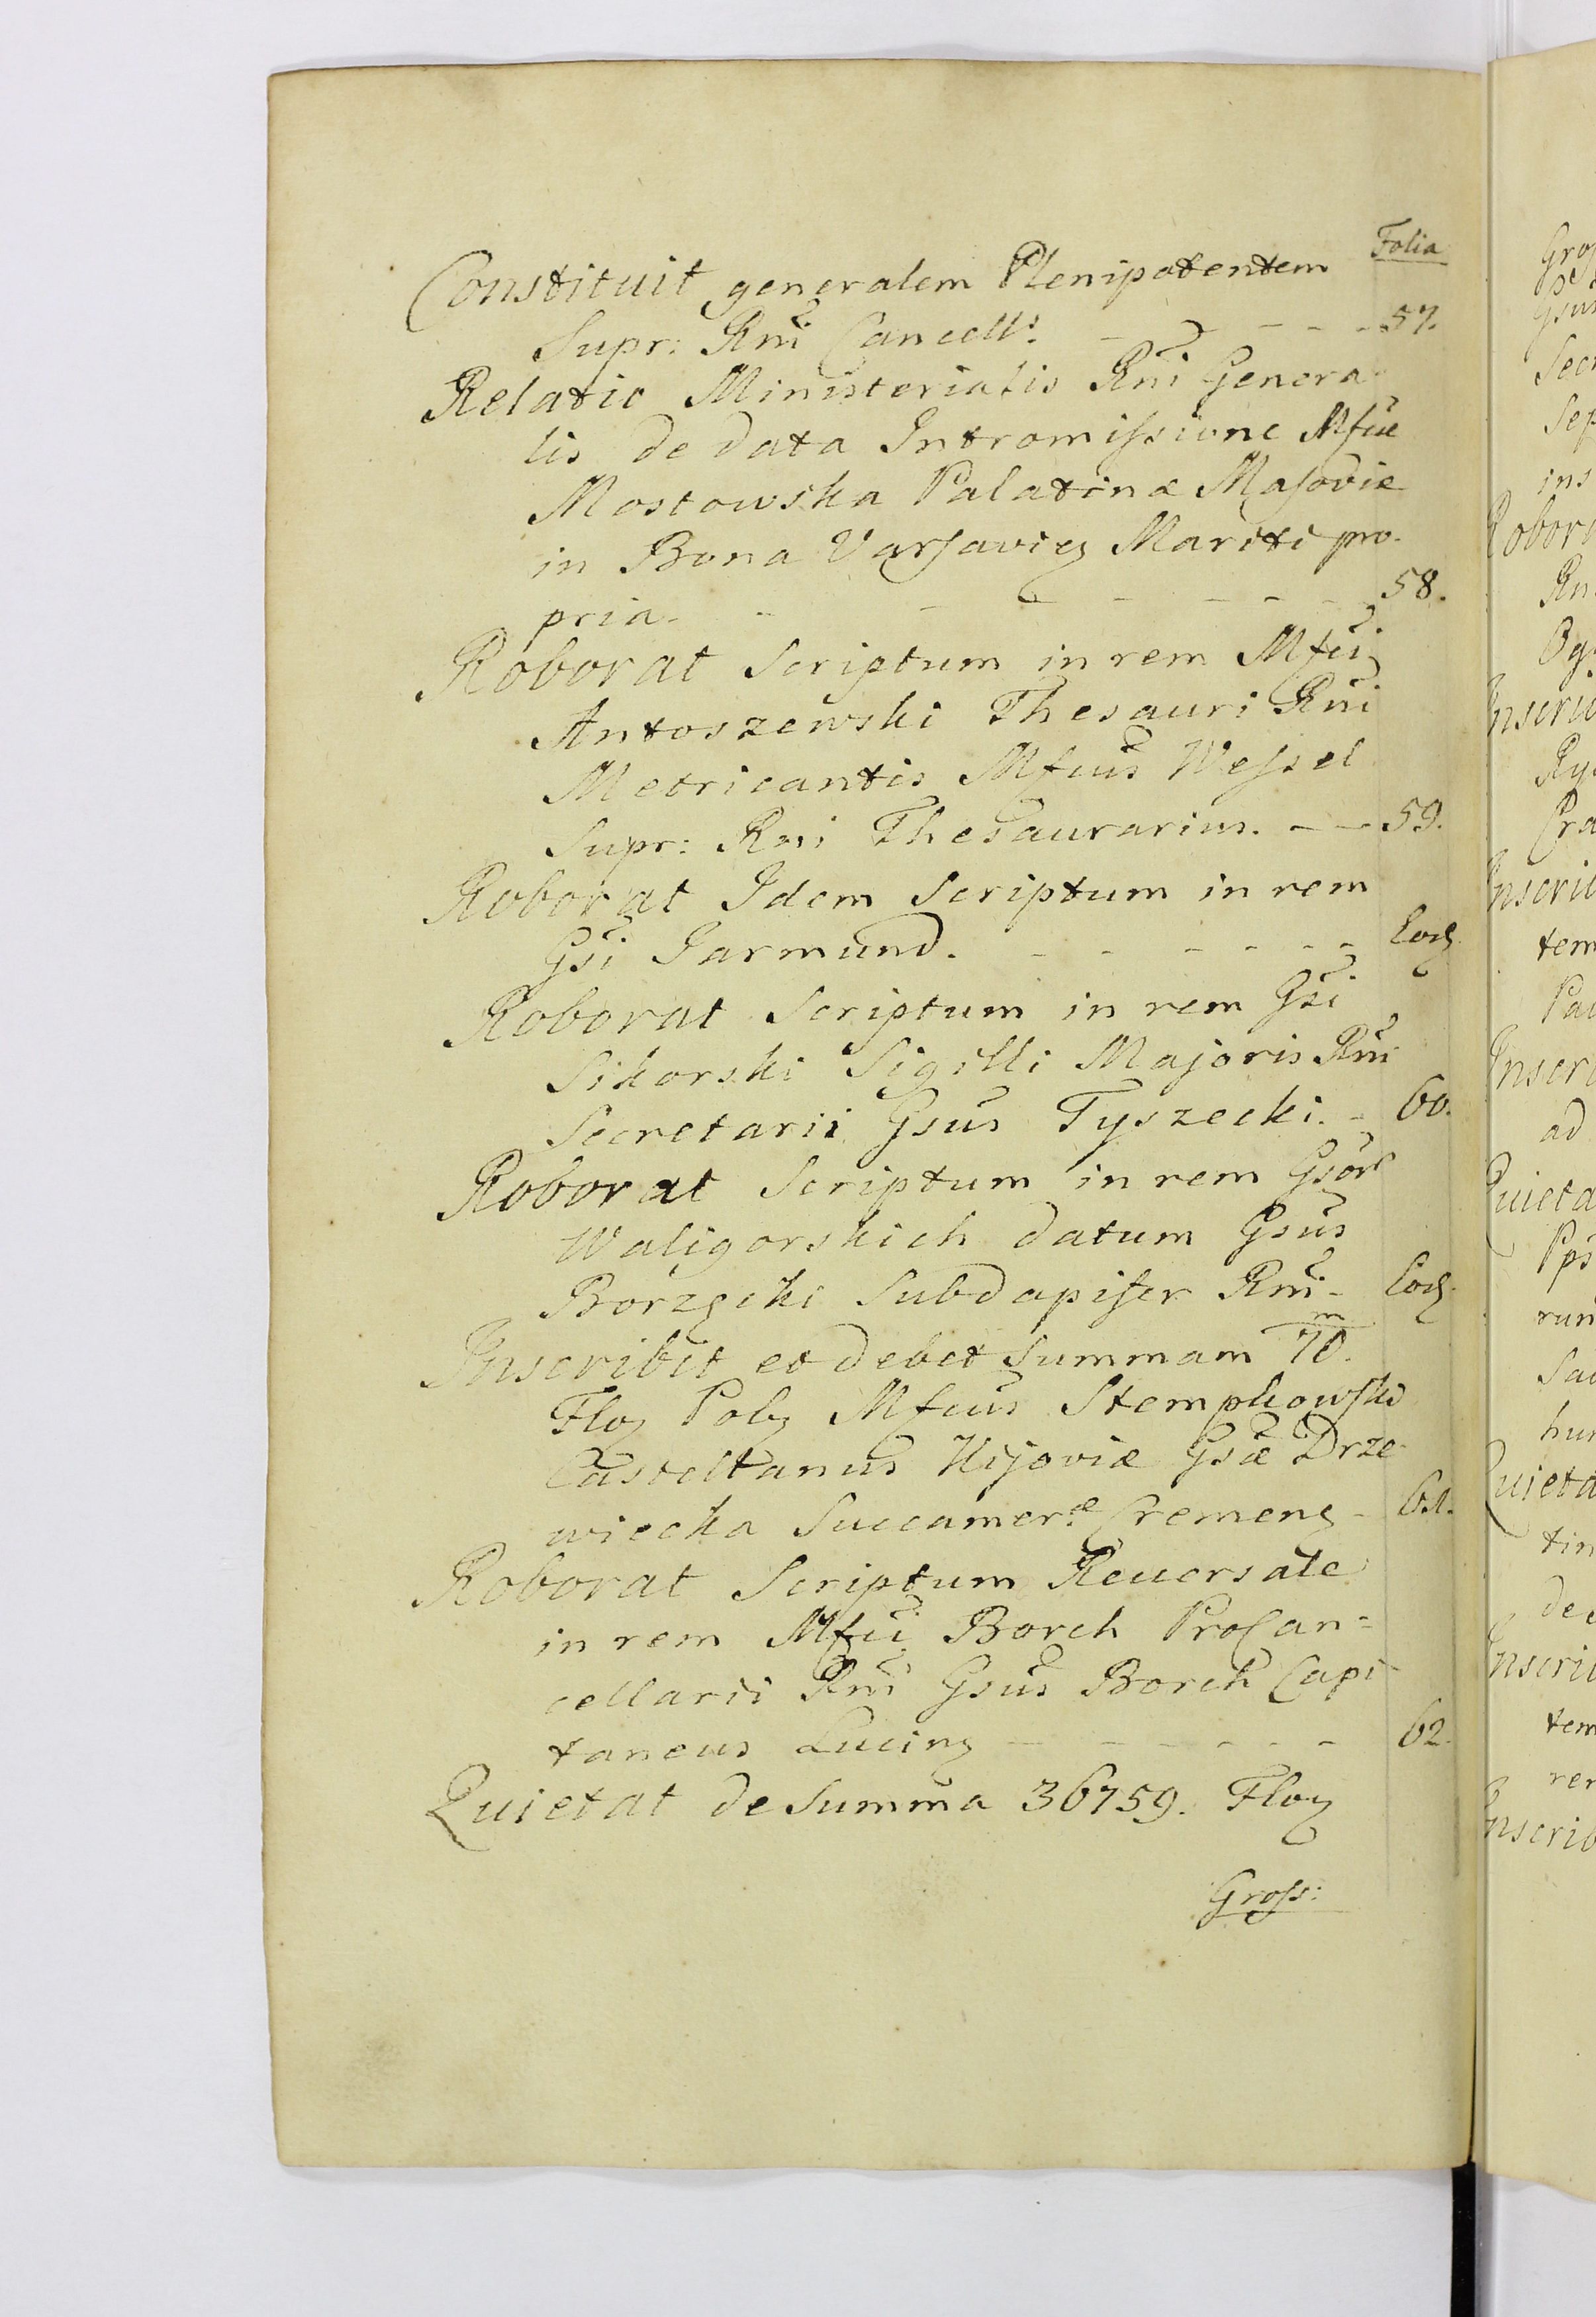 Folia
Constituit generalem Plenipotentem
Supr: Rni Cancells. - - - - 57.
Relatio Ministerialis Rni Genera-
lis de data Intromissione Mfcæ
Mostowska Palatinæ Masoviæ
in Bona Varsavien Mariti pro-
pria. - - - - - - - 58.
Roborat Scriptum in rem Mfci
Antoszewski Thesauri Rni
Metricantis Mfcus Wessel
Supr: Rni Thesaurarius. - - 59.
Roborat Idem Scriptum in rem
Gsi Jarmund. - - - - - - Eod
Roborat Scriptum in rem Gsi
Sikorski Sigilli Majoris Rni
Secretarii Gsus Tyszecki. - 60.
Roborat Scriptum in rem Gsor
Waligorskich datum Gsus
Borzęcki Subdapifer Rni - Eod
Inscribit et debet Summam 70.m
Flo Pol Mfcus Stempkowski
Castellanus Kijoviæ Gsæ Drze-
wiecka Succameræ Cremen - 61.
Roborat Scriptum Reversale
in rem Mfci Borch ProCan=
cellarii Rni Gsus Borch Capi-
taneus Lucin - - - - - - 62.
Quietat de Summa 36759. Flo
Gross:
Gros
Gsu
Secr
Sep
ins
Robora
Rn
Og
Inscrib
Ry
Pra
Inscrib
tem
Pau
Inscri
ad
Quieta
Pps
run
Sac
hun
Quieta
tin
de
Inscrib
tem
rer
Inscrib